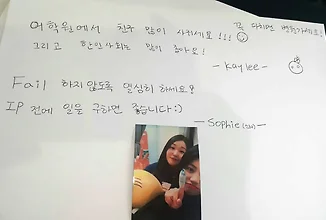 어학원에서 친구 많이 사귀세요!!!
꼭 다치면 병원가세요!
그리고 한인사회는 많이 좁아요!
- Kaylee -
Fail 하지않도록 열심히 하세요!
IP 전에 일을 구하면 좋습니다:)
- Sophie(san) -